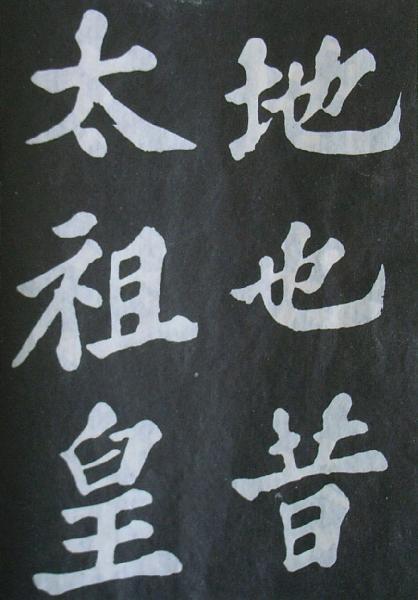 地也昔
太祖皇